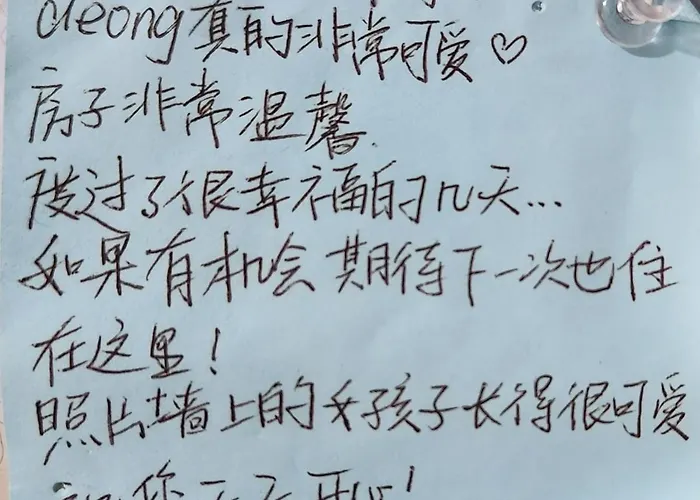 deong真的非常可爱♡
房子非常温馨.
度过了很幸福的几天...
如果有机会 期待下一次也住
在这里!
照片墙上的女孩子长得很可爱
祝你天天开心!